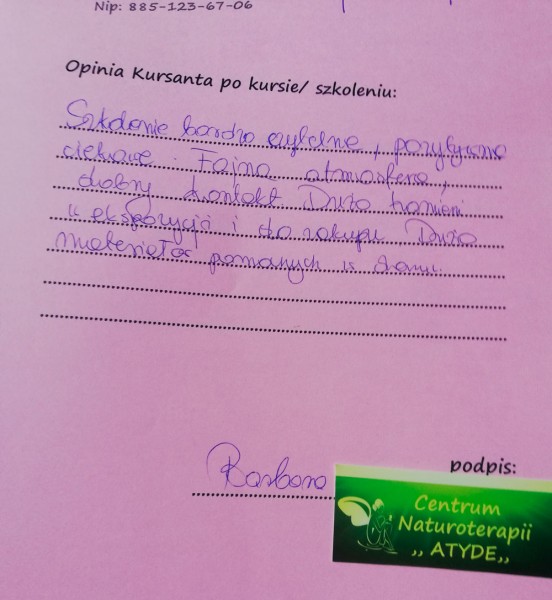 Nip: 885-123-67-06
Opinia Kursanta po kursie/ szkoleniu:
Szkolenie bardzo czytelne, pozytywne
ciekawe. Fajna atmosfera,
dobry kontakt Dużo kamieni
w ekspozycji i do zakupu Dużo
materiałów pomocnych w domu.
Barbara
podpis:
Centrum
Naturoterapii
,, ATYDE,,